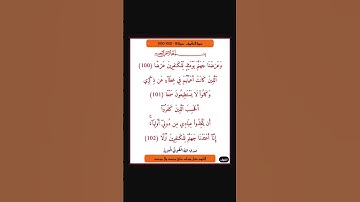 بسم الله الرحمن الرحيم
وَعَرَضْنَا جَهَنَّمَ يَوْمَئِذٍ لِّلْكَافِرِينَ عَرْضًا (100)
الَّذِينَ كَانَتْ أَعْيُنُهُمْ فِي غِطَاءٍ عَن ذِكْرِي
وَكَانُوا لَا يَسْتَطِيعُونَ سَمْعًا (101)
أَفَحَسِبَ الَّذِينَ كَفَرُوا
أَن يَتَّخِذُوا عِبَادِي مِن دُونِي أَوْلِيَاءَ
إِنَّا أَعْتَدْنَا جَهَنَّمَ لِلْكَافِرِينَ نُزُلًا (102)